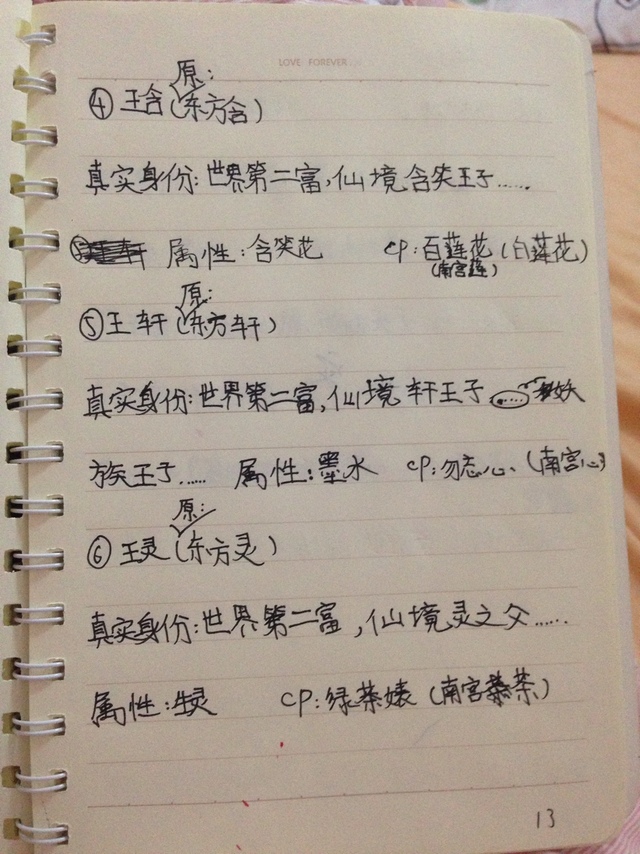 LOVE FOREVER...
原:
④王含(东方含)
真实身份:世界第二富,仙境含笑王子......
属性:含笑花 CP:百莲花(白莲花)
(南宫莲)
原:
⑤王轩(东方轩)
真实身份:世界第二富,仙境轩王子....妖
族王子..... 属性:墨水 CP:勿忘心、(南宫心)
原:
⑥王灵(东方灵)
真实身份:世界第二富,仙境灵之父......
属性:生灵 CP:绿茶婊(南宫茶)
13